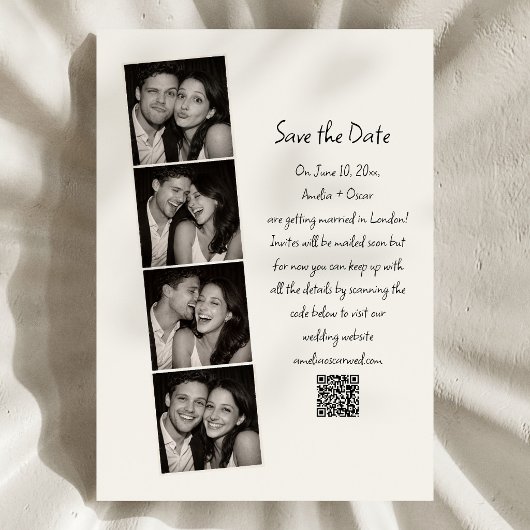 Save the Date
On June 10, 20xx,
Amelia + Oscar
are getting married in London!
Invites will be mailed soon but
for now you can keep up with
all the details by scanning the
code below to visit our
wedding website
ameliaoscarwed.com